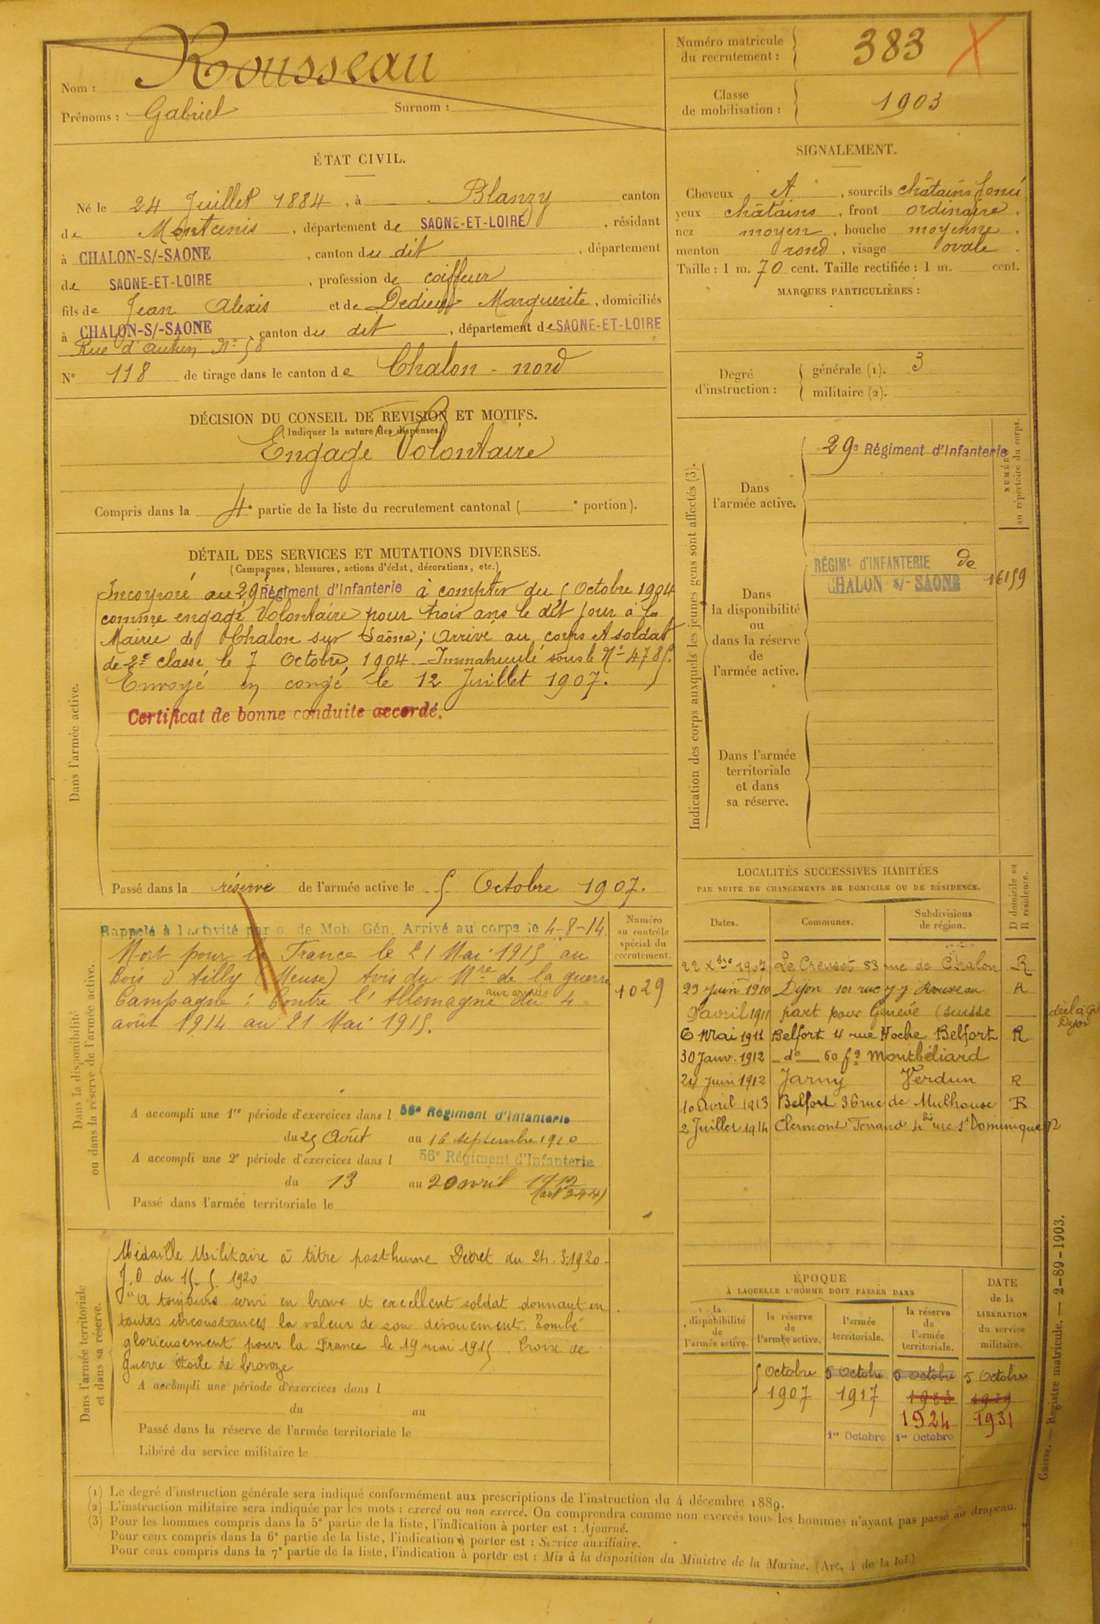 Nom : Rousseau
Prénoms : Gabriel Surnom :
Numéro matricule
du recrutement : 383
Classe
de mobilisation : 1903
ÉTAT CIVIL.
Né le 24 Juillet 1884, à Blanzy canton
de Montcenis, département de SAONE-ET-LOIRE, résidant
à CHALON-S/-SAONE, canton du dit, département
de SAONE-ET-LOIRE, profession de coiffeur
fils de Jean Alexis et de Dedieu Marguerite, domiciliés
à CHALON-S/-SAONE, canton du dit, département de SAONE-ET-LOIRE
Rue d'Autun N° 58
N° 118 de tirage dans le canton de Chalon - nord
SIGNALEMENT.
Cheveux A, sourcils châtains foncé
yeux châtains, front ordinaire.
nez moyen, bouche moyenne.
menton rond, visage ovale.
Taille : 1 m. 70 cent. Taille rectifiée : 1 m. cent.
MARQUES PARTICULIÈRES :
Degré
d'instruction :
générale (1). 3
militaire (2).
DÉCISION DU CONSEIL DE REVISION ET MOTIFS.
(Indiquer la nature des dispenses.)
Engagé Volontaire
Compris dans la 4e partie de la liste du recrutement cantonal ( e portion).
DÉTAIL DES SERVICES ET MUTATIONS DIVERSES.
(Campagnes, blessures, actions d'éclat, décorations, etc.)
Dans l'armée active.
Incorporé au 29e Régiment d'Infanterie à compter du 5 Octobre 1904
comme engagé Volontaire pour trois ans le dit jour à la
Mairie de Chalon sur Saône; Arrivé au corps et soldat
de 2e classe le 7 Octobre 1904. Immatriculé sous le N° 4785.
Envoyé en congé le 12 Juillet 1907.
Certificat de bonne conduite accordé.
Passé dans la réserve de l'armée active le 5 Octobre 1907.
Indication des corps auxquels les jeunes gens sont affectés (3).
NUMÉRO
au répertoire du corps.
Dans
l'armée active.
29e Régiment d'Infanterie
Dans
la disponibilité
ou
dans la réserve
de
l'armée active.
RÉGIMt D'INFANTERIE de
CHALON s/- SAONE 16159
Dans l'armée
territoriale
et dans
sa réserve.
Dans la disponibilité
ou dans la réserve de l'armée active.
Numéro
au contrôle
spécial du
recrutement.
1029
Rappelé à l'activité par o. de Mob. Gén. Arrivé au corps le 4-8-14.
Mort pour la France le 21 Mai 1915 au
bois d'Ailly (Meuse) Avis du Mre de la guerre
Campagne : Contre l'Allemagne aux armées du 4
août 1914 au 21 Mai 1915.
A accompli une 1re période d'exercices dans l 56e Régiment d'Infanterie
du 25 Août au 16 septembre 1910
A accompli une 2e période d'exercices dans l 56e Régiment d'Infanterie
du 13 au 20 avril 1912
Passé dans l'armée territoriale le
LOCALITÉS SUCCESSIVES HABITÉES
PAR SUITE DE CHANGEMENTS DE DOMICILE OU DE RÉSIDENCE.
Dates. Communes. Subdivisions
de région.
D domicile ou
R résidence.
22 Xbre 1907 Le Creusot 83 rue de Chalon R
23 Juin 1910 Dijon 101 rue J J Rousseau R
avril 1911 part pour Genève (Suisse
6 Mai 1911 Belfort 4 rue Hoche Belfort R
30 Janv. 1912 do 60 fg Montbéliard
24 Juin 1912 Jarny Verdun R
10 avril 1913 Belfort 36 rue de Mulhouse R
2 Juillet 1914 Clermont Ferrand 4 bis rue St Dominique R
Dans l'armée territoriale
et dans sa réserve.
Médaille Militaire à titre posthume Décret du 24.3.1920.
J.O du 15.5.1920
"A toujours servi en brave et excellent soldat donnant en
toutes circonstances la valeur de son dévouement. Tombé
glorieusement pour la France le 19 mai 1915. Croix de
guerre étoile de bronze
A accompli une période d'exercices dans l
du au
Passé dans la réserve de l'armée territoriale le
Libéré du service militaire le
ÉPOQUE
À LAQUELLE L'HOMME DOIT PASSER DANS
DATE
de la
LIBÉRATION
du service
militaire.
la
disponibilité
de
l'armée active.
la réserve
de
l'armée active.
l'armée
territoriale.
la réserve
de
l'armée
territoriale.
5 Octobre 5 Octobre 5 Octobre 5 Octobre
1907 1917 1923 1929
1924 1931
1er Octobre 1er Octobre
Guerre. — Registre matricule. — 2-89-1903.
(1) Le degré d'instruction générale sera indiqué conformément aux prescriptions de l'instruction du 4 décembre 1889.
(2) L'instruction militaire sera indiquée par les mots : exercé ou non exercé. On comprendra comme non exercés tous les hommes n'ayant pas passé au drapeau.
(3) Pour les hommes compris dans la 5e partie de la liste, l'indication à porter est : Ajourné.
Pour ceux compris dans la 6e partie de la liste, l'indication à porter est : Service auxiliaire.
Pour ceux compris dans la 7e partie de la liste, l'indication à porter est : Mis à la disposition du Ministre de la Marine. (Art. 4 de la loi.)